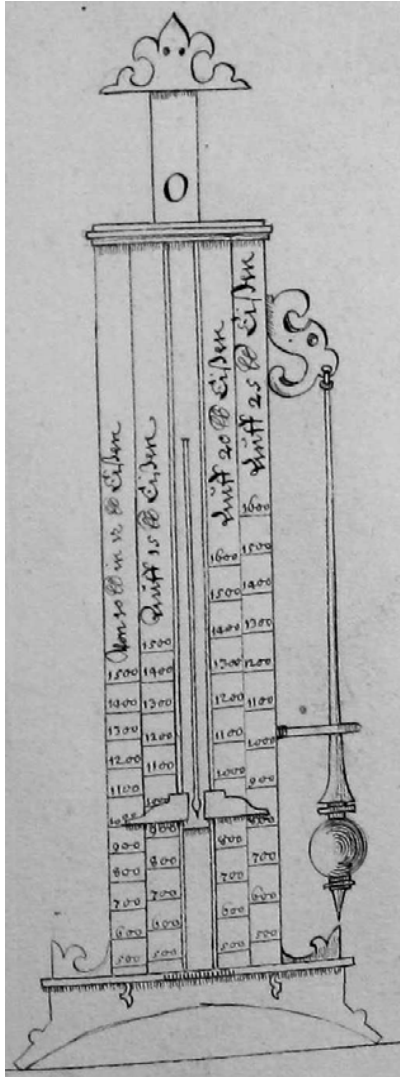 Von 10 ℔ in 12 ℔ Eißen
1500
1400
1300
1200
1100
1000
900
800
700
600
500
Auff 15 ℔ Eißen
1500
1400
1300
1200
1100
1000
900
800
700
600
500
Auff 20 ℔ Eißen
1600
1500
1400
1300
1200
1100
1000
800
700
600
500
Auff 25 ℔ Eißen
1600
1500
1400
1300
1200
1100
1000
900
800
700
600
500